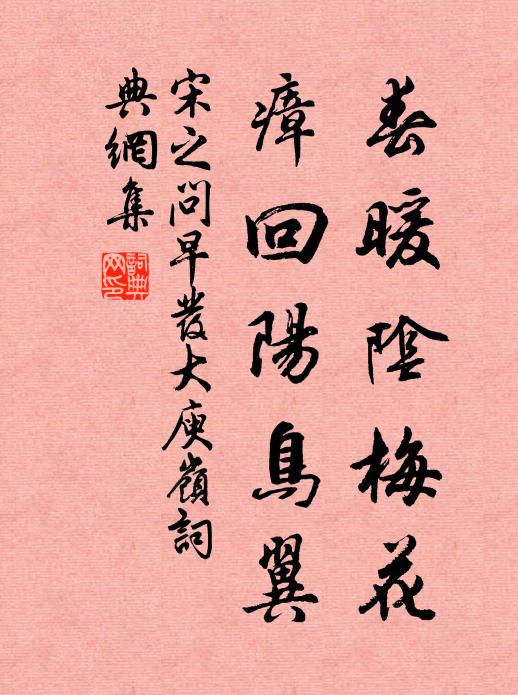 春暖陰梅花
瘴回陽鳥翼
宋之問早發大庾嶺詞
典網集
詞典
网印